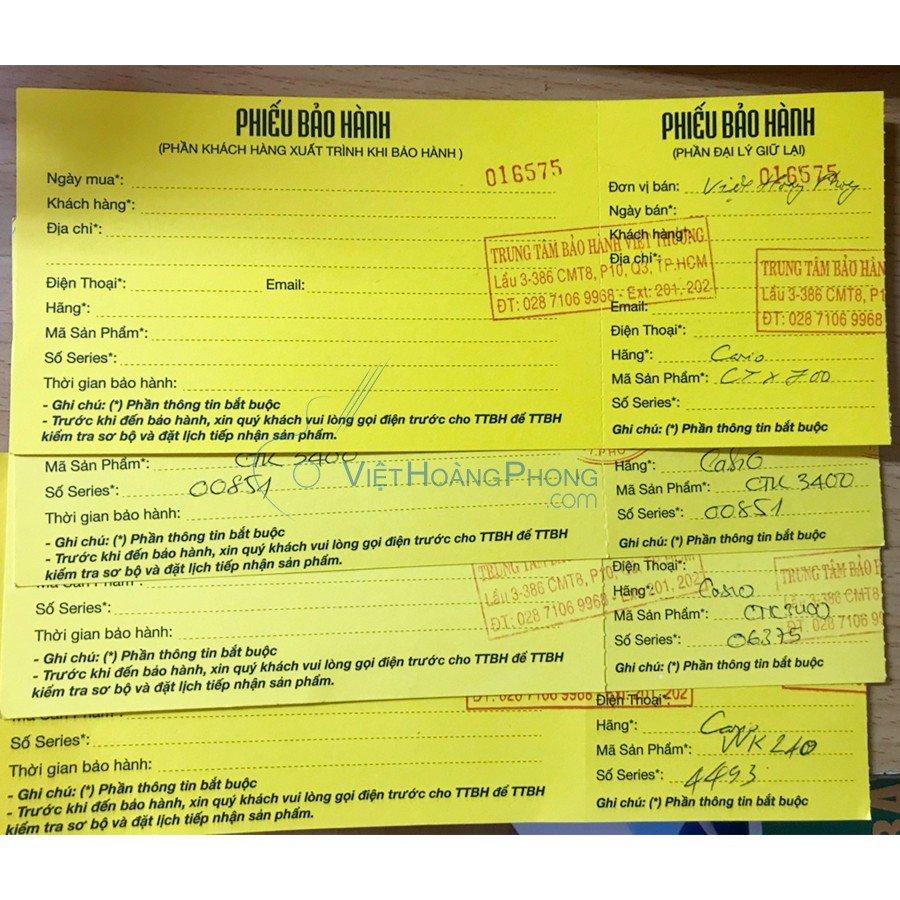 PHIẾU BẢO HÀNH
(PHẦN KHÁCH HÀNG XUẤT TRÌNH KHI BẢO HÀNH )
016575
Ngày mua*:
Khách hàng*:
Địa chỉ*:
TRUNG TÂM BẢO HÀNH VIỆT THƯƠNG
Lầu 3-386 CMT8, P10, Q3, TP.HCM
ĐT: 028 7106 9968 - Ext: 201, 202
Điện Thoại*: Email:
Hãng*:
Mã Sản Phẩm*:
Số Series*:
Thời gian bảo hành:
- Ghi chú: (*) Phần thông tin bắt buộc
- Trước khi đến bảo hành, xin quý khách vui lòng gọi điện trước cho TTBH để TTBH
kiểm tra sơ bộ và đặt lịch tiếp nhận sản phẩm.
PHIẾU BẢO HÀNH
(PHẦN ĐẠI LÝ GIỮ LẠI)
016575
Đơn vị bán: Việt Hoàng Phong
Ngày bán*:
Khách hàng*:
Địa chỉ*:
TRUNG TÂM BẢO HÀN
Lầu 3-386 CMT8, P1
ĐT: 028 7106 9968
Email:
Điện Thoại*:
Hãng*: Casio
Mã Sản Phẩm*: CT X 700
Số Series*:
Ghi chú: (*) Phần thông tin bắt buộc
Mã Sản Phẩm*: CTK 3400
Số Series*: 00851
Thời gian bảo hành:
- Ghi chú: (*) Phần thông tin bắt buộc
- Trước khi đến bảo hành, xin quý khách vui lòng gọi điện trước cho TTBH để TTBH
kiểm tra sơ bộ và đặt lịch tiếp nhận sản phẩm.
VIỆTHOÀNGPHONG
.com
Hãng*: Casio
Mã Sản Phẩm*: CTK 3400
Số Series*: 00851
Ghi chú: (*) Phần thông tin bắt buộc
Số Series*:
Thời gian bảo hành:
- Ghi chú: (*) Phần thông tin bắt buộc
- Trước khi đến bảo hành, xin quý khách vui lòng gọi điện trước cho TTBH để TTBH
kiểm tra sơ bộ và đặt lịch tiếp nhận sản phẩm.
Lầu 3-386 CMT8, P10
ĐT: 028 7106 9968 - Ext: 201, 202
Điện Thoại*:
Hãng*: Casio
Mã Sản Phẩm*: CTK3400
Số Series*: 06375
Ghi chú: (*) Phần thông tin bắt buộc
TRUNG TÂM BẢO
3-386 CMT8
ĐT: 028 7106 99
Số Series*:
Thời gian bảo hành:
- Ghi chú: (*) Phần thông tin bắt buộc
- Trước khi đến bảo hành, xin quý khách vui lòng gọi điện trước cho TTBH để TTBH
kiểm tra sơ bộ và đặt lịch tiếp nhận sản phẩm.
ĐT: 028 7106 9968 - Ext: 201, 202
Điện Thoại*:
Hãng*: Casio
Mã Sản Phẩm*: WK 240
Số Series*: 4493
Ghi chú: (*) Phần thông tin bắt buộc